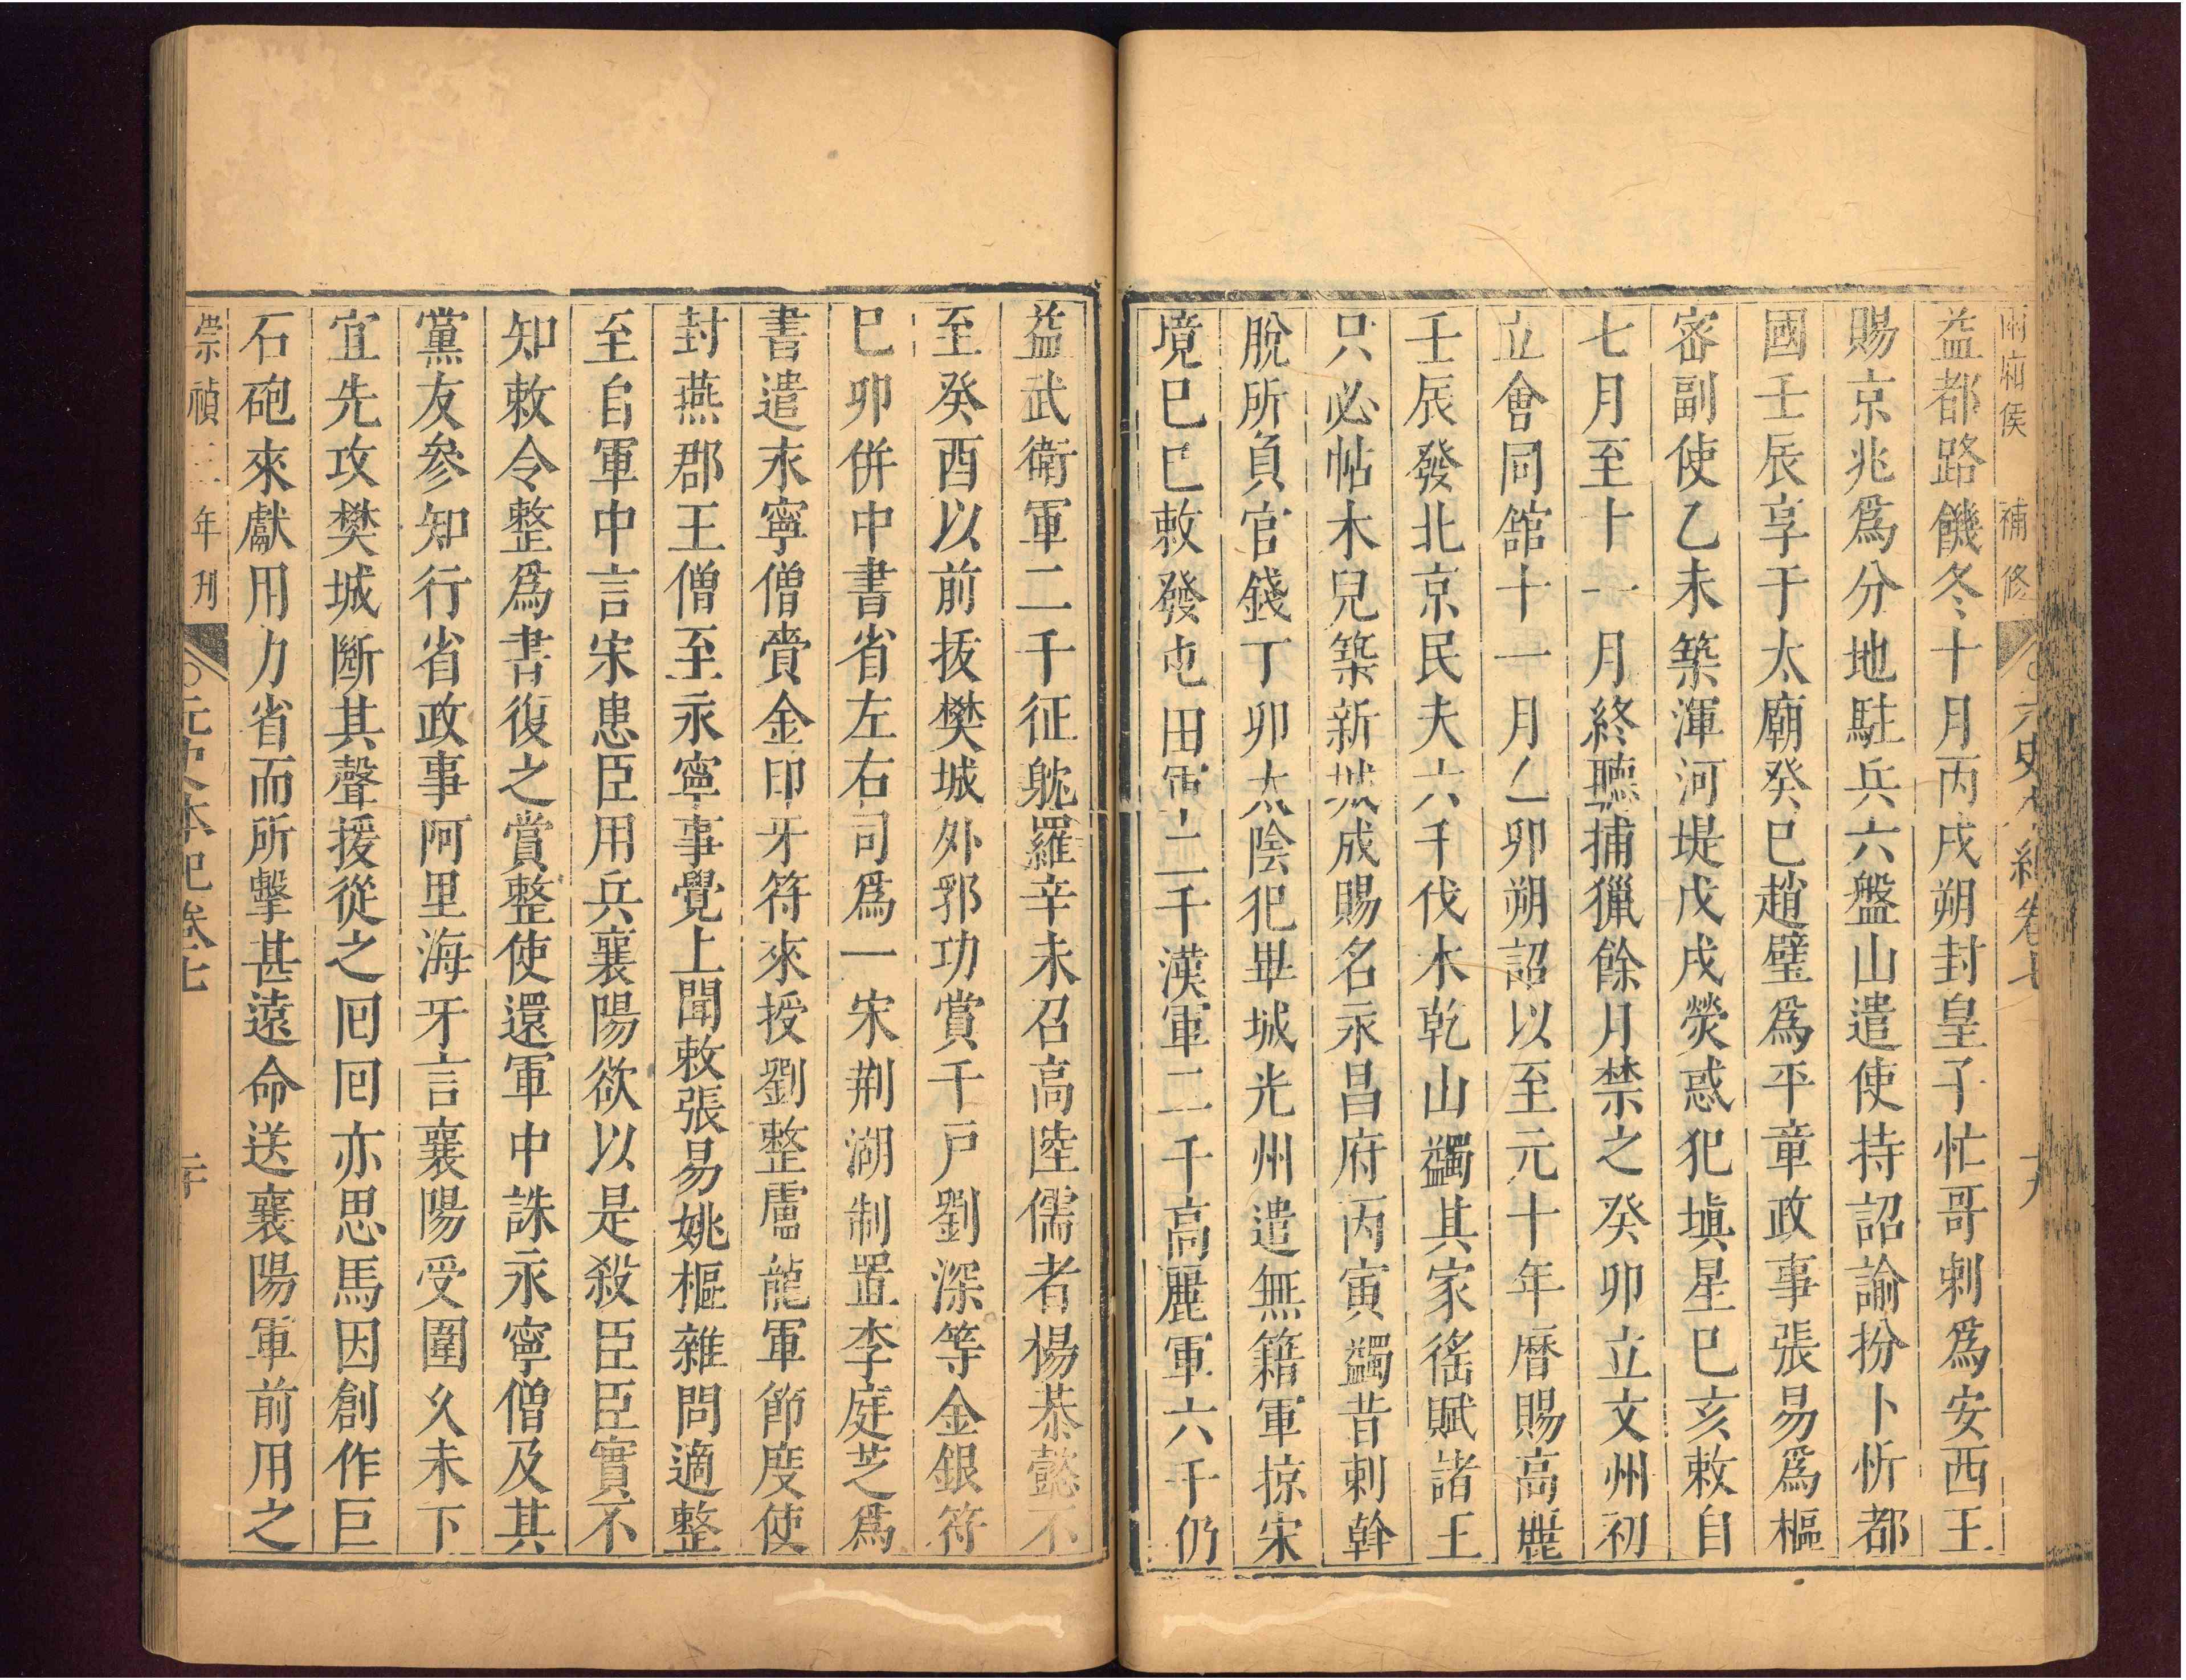 補修
元史本紀卷七
十九
益都路饑冬十月丙戌朔封皇子忙哥剌爲安西王
賜京兆爲分地駐兵六盤山遣使持詔諭扮卜忻都
國壬辰享于太廟癸巳趙璧爲平章政事張易爲樞
密副使乙未築渾河堤戊戌熒惑犯塡星巳亥敕自
七月至十一月終聽捕獵餘月禁之癸卯立文州初
立會同館十一月乙卯朔詔以至元十年曆賜高麗
壬辰發北京民夫六千伐木乾山蠲其家徭賦諸王
只必帖木兒築新城成賜名永昌府丙寅蠲昔剌斡
脫所負官錢丁卯太陰犯畢城光州遣無籍軍掠宋
境巳巳敕發屯田軍二千漢軍二千高麗軍六千仍
益武衛軍二千征躭羅辛未召高陸儒者楊恭懿不
至癸酉以前拔樊城外郛功賞千戶劉深等金銀符
巳卯併中書省左右司爲一宋荆湖制置李庭芝爲
書遣永寧僧賫金印牙符來授劉整盧龍軍節度使
封燕郡王僧至永寧事覺上聞敕張易姚樞雜問適整
至自軍中言宋患臣用兵襄陽欲以是殺臣臣實不
知敕令整爲書復之賞整使還軍中誅永寧僧及其
黨友參知行省政事阿里海牙言襄陽受圍久未下
宜先攻樊城斷其聲援從之囘囘亦思馬因創作巨
石砲來獻用力省而所擊甚遠命送襄陽軍前用之
崇禎三年刋
元史本紀卷七
二十